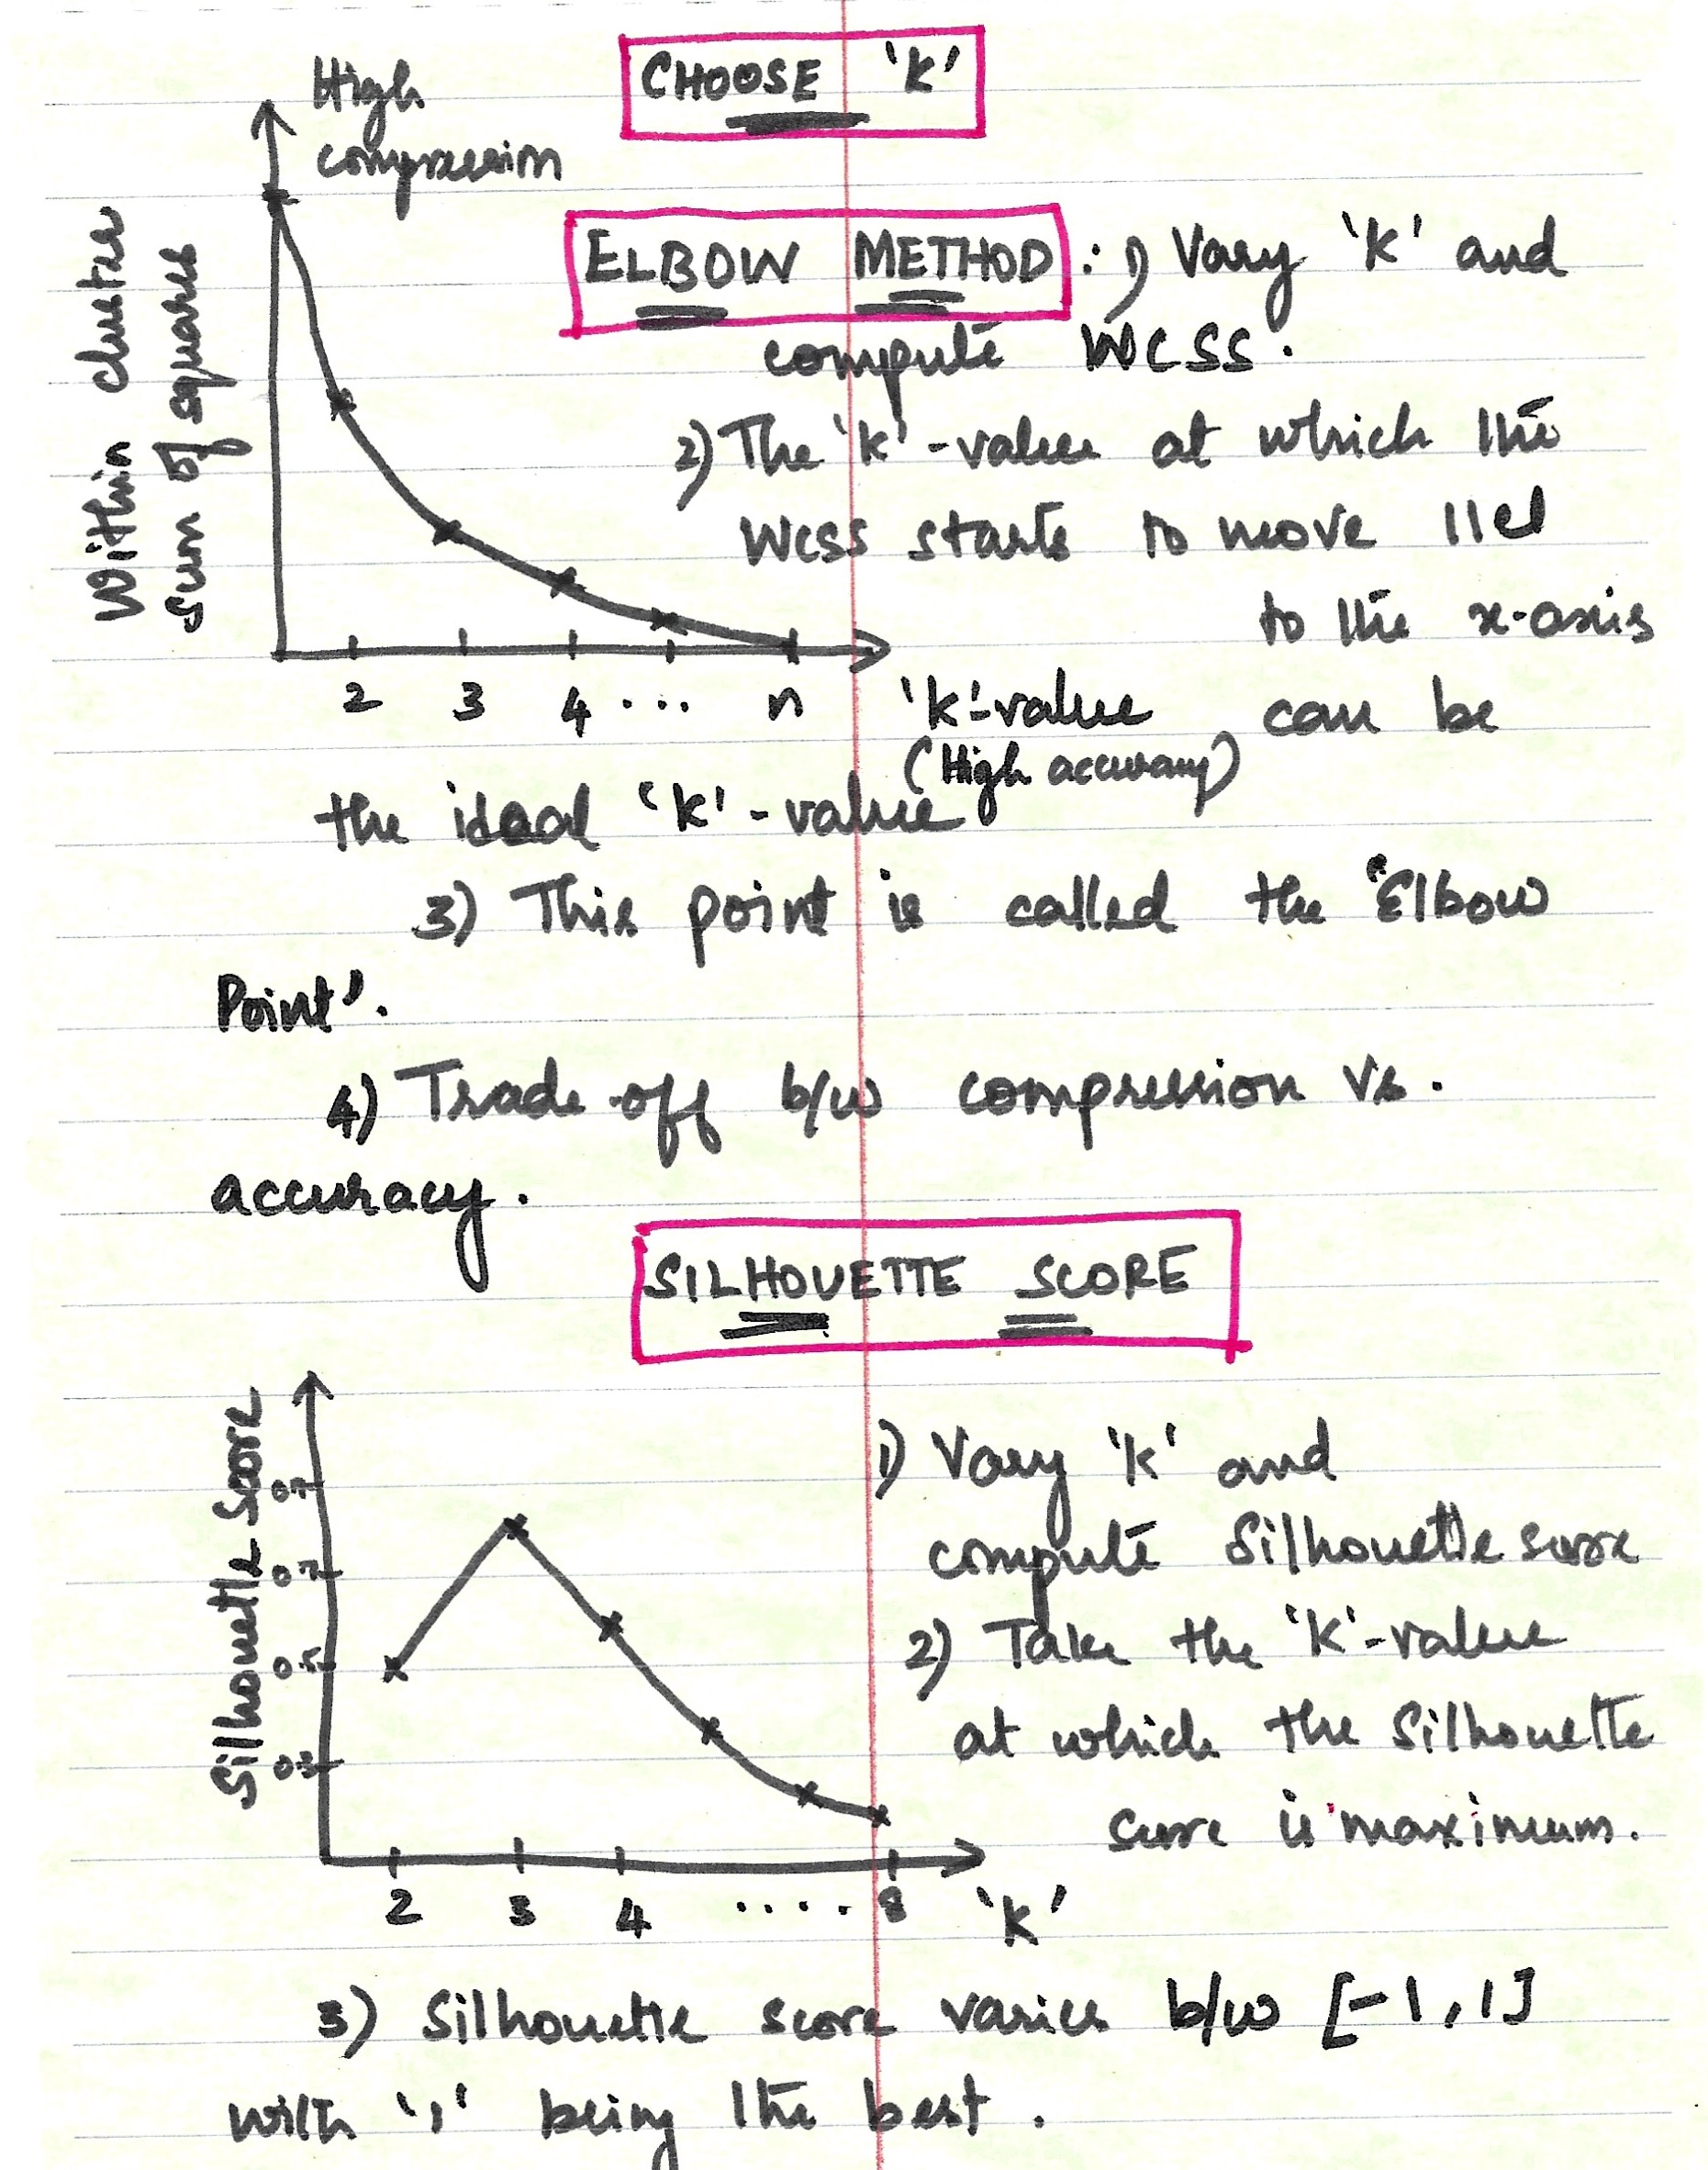 CHOOSE 'K'
High
compression
Within cluster
sum of squares
ELBOW METHOD : 1) Vary 'K' and
compute WCSS.
2) The 'K'-value at which the
WCSS starts to move ||el
to the x-axis
2 3 4 ... n 'K'-value can be
(High accuracy)
the ideal 'K'-value
3) This point is called the 'Elbow
Point'.
4) Trade-off b/w compression vs.
accuracy.
SILHOUETTE SCORE
Silhouette Score
0.7
0.5
0.3
1) Vary 'K' and
compute Silhouette score
2) Take the 'K'-value
at which the Silhouette
score is maximum.
2 3 4 ..... 8 'K'
3) Silhouette score varies b/w [-1,1]
with '1' being the best.